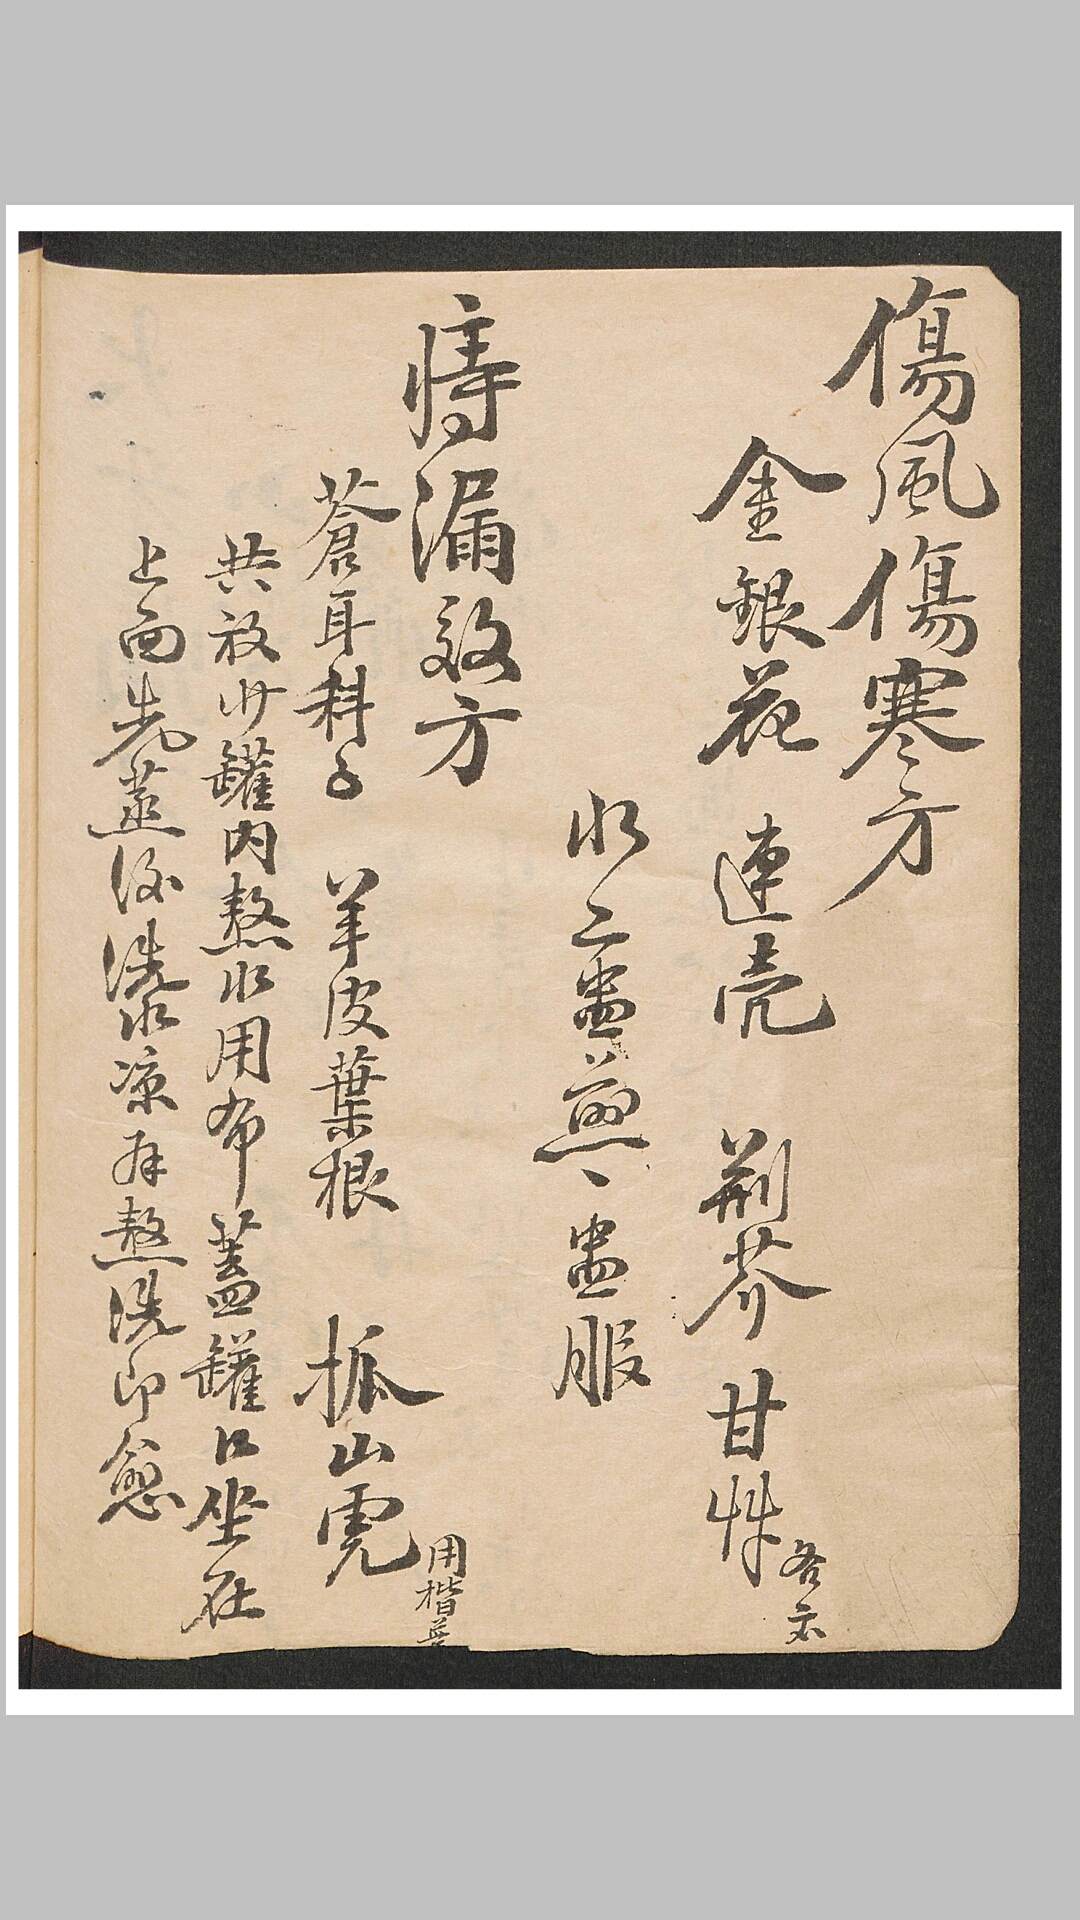 傷風傷寒方
金銀花 連壳 荆芥 甘艸 各
水二盅煎一盅服
痔漏效方
蒼耳科子 羊皮葉根 抓山虎 用楷
共放罐内熬水用布蓋罐口坐在
上面先薰後洗水凉再熬洗即愈